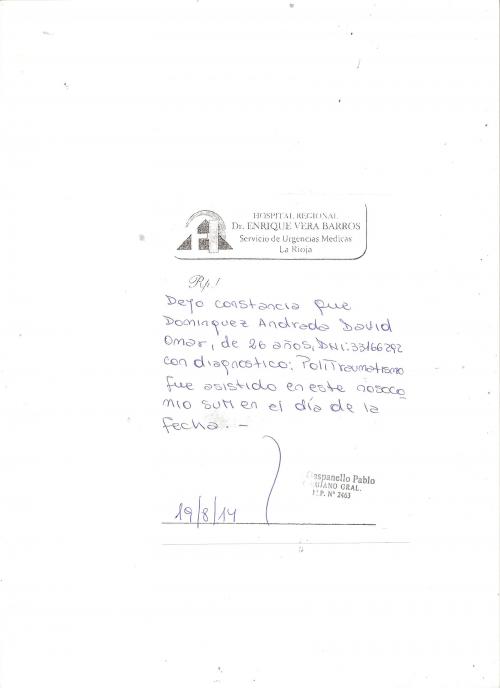 HOSPITAL REGIONAL
Dr. ENRIQUE VERA BARROS
Servicio de Urgencias Medicas
La Rioja
Rp/
Dejo constancia que
Dominguez Andrada David
Omar, de 26 años, DNI: 33166292
con diagnostico: PoliTraumatismo
fue asistido en este nosoco
mio SUM en el día de la
fecha. —
Daspanello Pablo
CIRUJANO GRAL.
M.P. Nº 2463
19/8/14